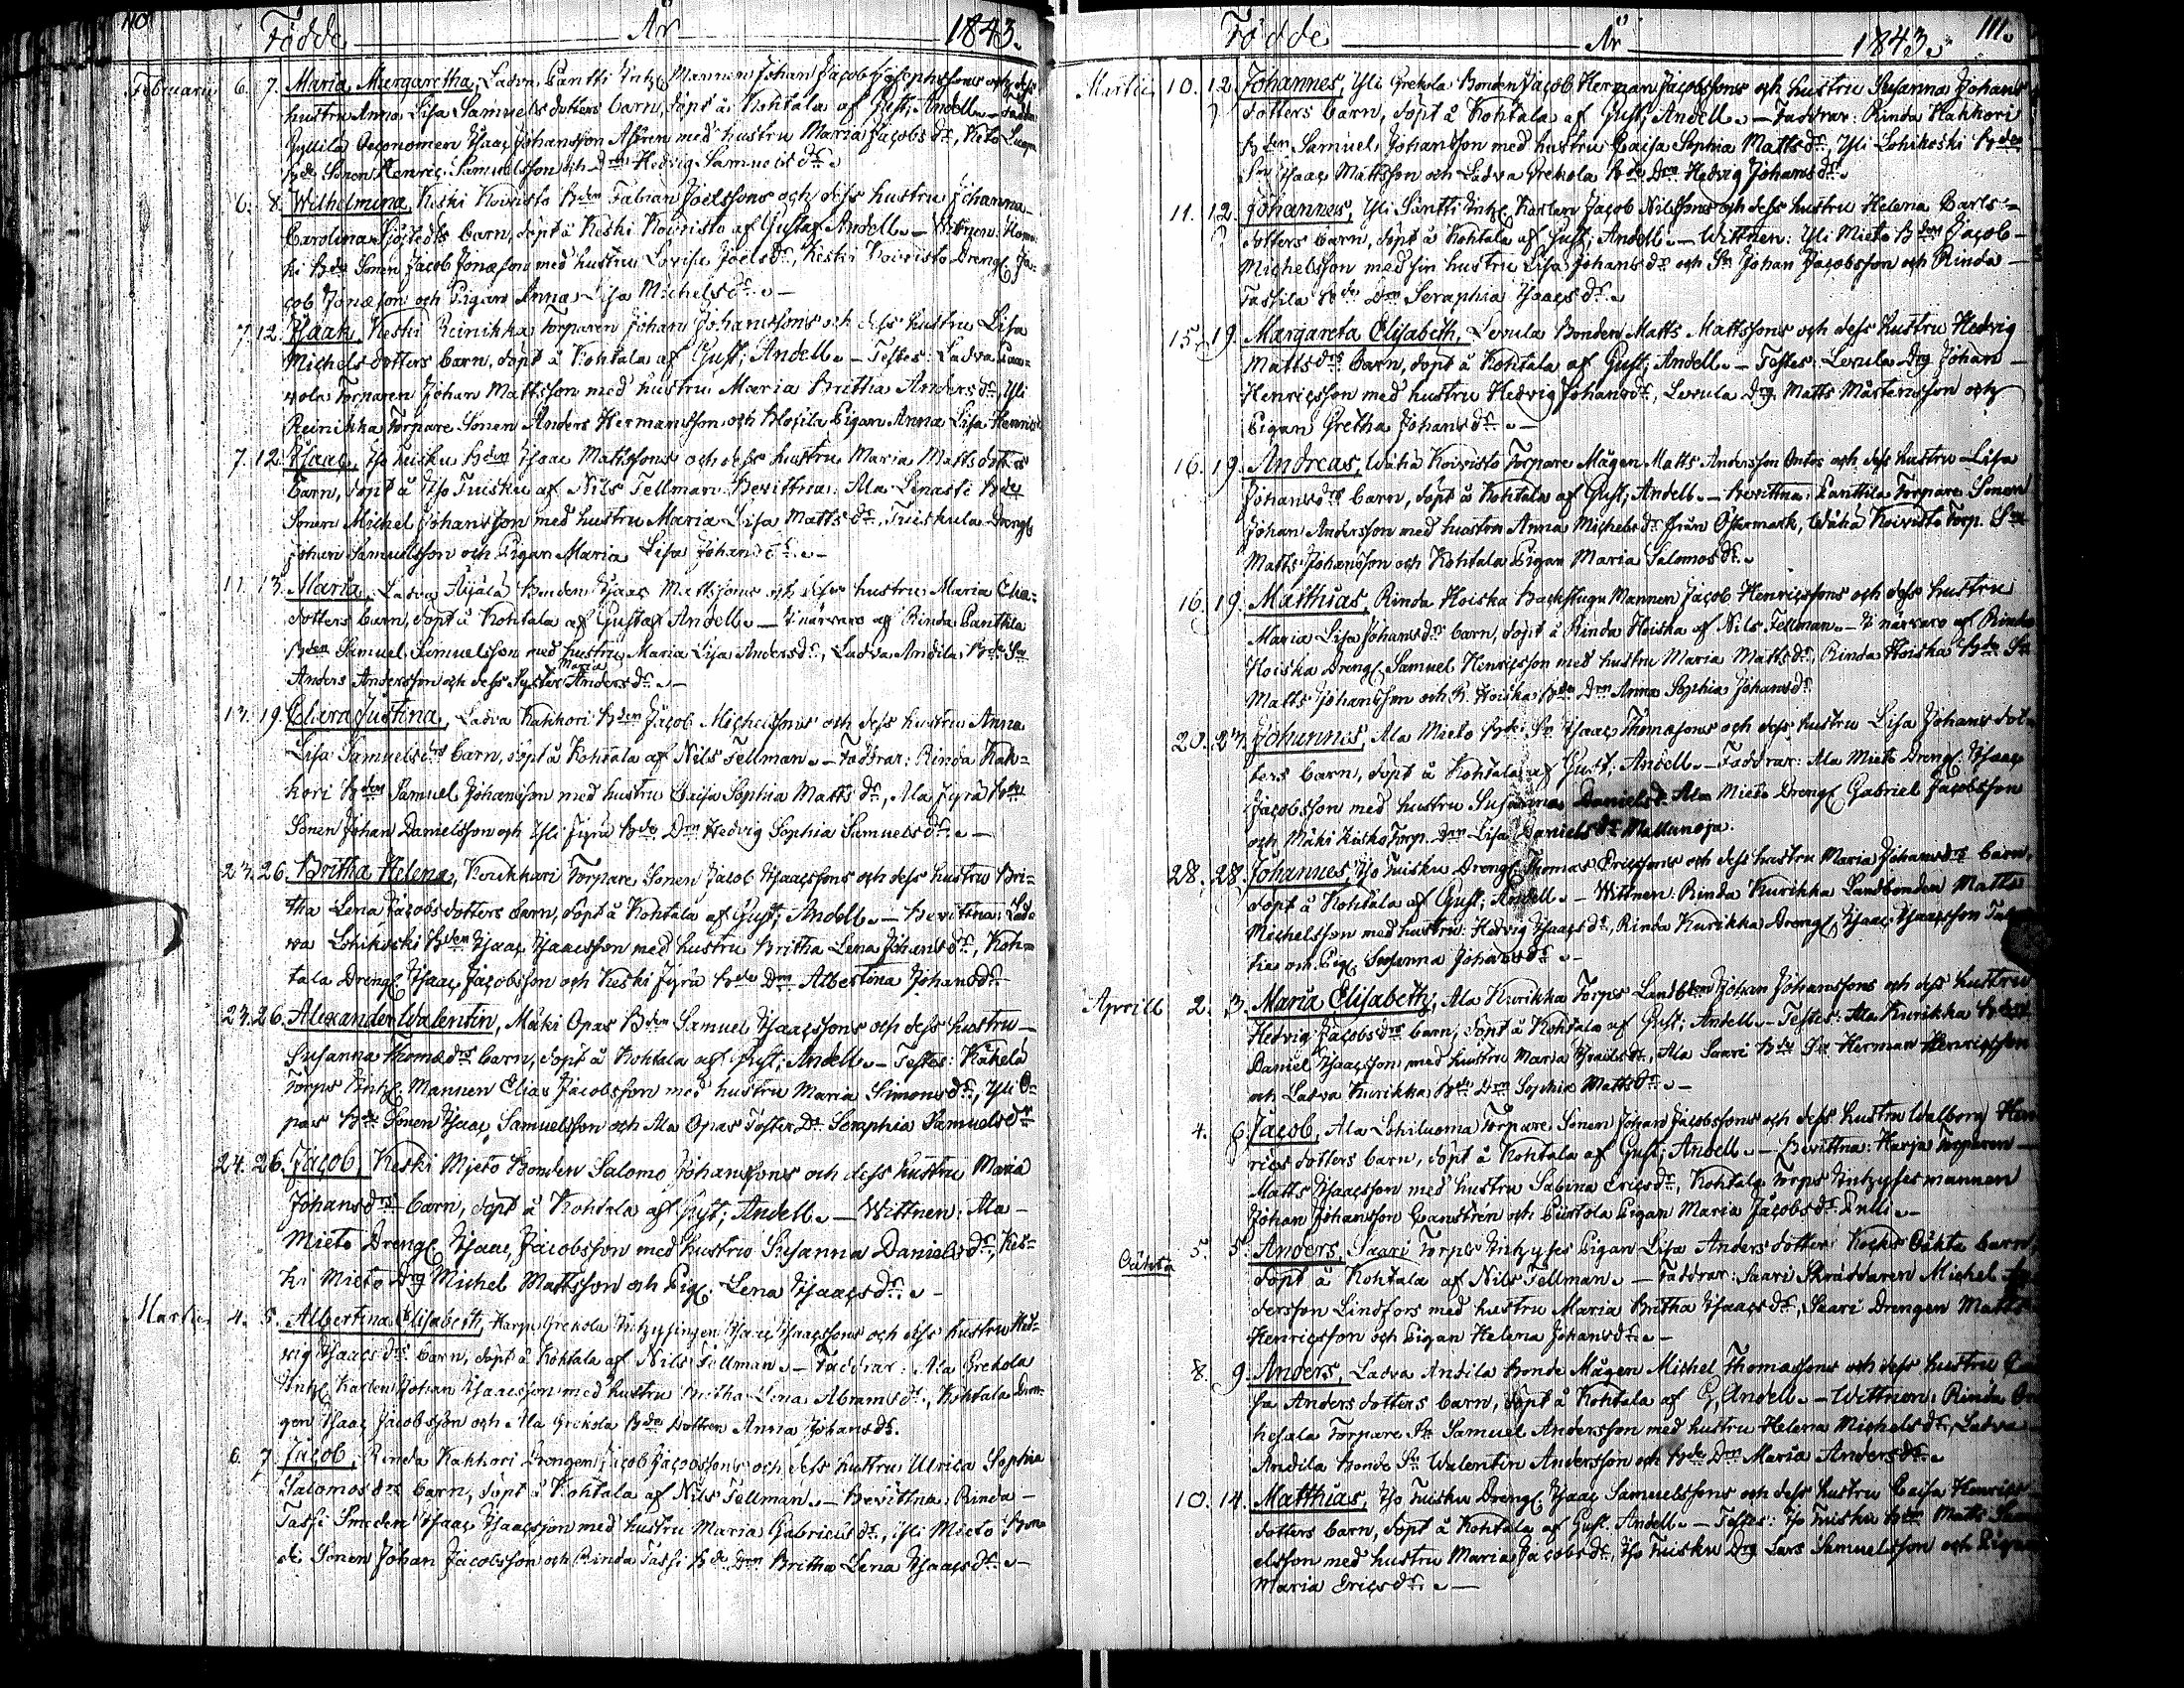 110
Födde År 1843.
Februarii 6. 7. Maria Margaretha, Ladva Pantti Inh. Mannen Johan Jacob Josephssons och dess
hustru Anna Lisa Samuels dotters barn, döpt å Kohtala af Gust; Andell. — Faddr:
Gyllilä Oeconomen Isaac Johansson Ahren med hustru Maria Jacobs dr,
Bde Sonen Henric Samuelsson och Drn Hedvig Samuels dr.
6. 8. Wilhelmina, Keski Koivisto Bden Fabian Joelssons och dess hustru Johanna
Carolina Sjöstedts barn, döpt å Keski Koivisto af Gustaf Andell. — Wittnen:
ki Bde Sonen Jacob Jonæson med hustru Lovisa Joels dr, Keski Koivisto Dreng. Ja-
cob Jonæson och Pigan Anna Lisa Michels dr. —
7. 12. Isaak, Keski Reinikka Torparen Johan Johanssons och dess hustru Lisa
Michels dotters barn, döpt å Kohtala af Gust; Andell. — Testes: Ladva Paa-
vola Torparen Johan Mattsson med hustru Maria Brittha Anders dr, Yli
Reinikka Torpare Sonen Anders Hermansson och Pigan Anna Lisa Henrics
7. 12. Isaac, Iso Tuisku Bden Isaac Mattssons och dess hustru Maria Matts dotters
barn, döpt å Iso Tuisku af Nils Tellman. Bevittna: Ala Lipasti Bde
Sonen Michel Johansson med hustru Maria Lisa Matts dr, Tuiskula Dreng
Johan Samuelsson och Pigan Maria Lisa Johans dr. —
11. 13. Maria, Ladva Äijälä Bonden Isaac Mattssons och dess hustru Maria Elia-
dotters barn, döpt å Kohtala af Gustaf Andell. — I närvaro af Rinda Panttila
Bden Samuel Samuelsson med hustru Maria Lisa Anders dr, Ladva Andila Bde Sn
Anders Andersson och dess Syster Maria Anders dr. —
13. 19. Justina, Ladva Kahkori Bden Jacob Michelssons och dess hustru Anna
Lisa Samuels drs barn, döpt å Kohtala af Nils Tellman. — Faddrar: Rinda Kah-
kori Bden Samuel Johansson med hustru Caisa Sophia Matts dr, Ala Jyrä Bde
Sonen Johan Danielsson och Yli Jyrä Bde Drn Hedvig Sophia Samuels dr. —
23. 26. Brittha Helena, Koukkari Torpare Sonen Jacob Isaacssons och dess hustru Bri-
tha Lena Jacobs dotters barn, döpt å Kohtala af Gust; Andell. — Bevittna: Lad-
va Lohikoski Bden Isaac Isaacsson med hustru Brittha Lena Johans dr, Koh-
tala Dreng. Isaac Jacobsson och Keski Jyrä Bde Drn Albertina Johans dr
23. 26. Alexander Walentin, Mäki Opas Bden Samuel Isaacssons och dess hustru —
Susanna Thomæ drs barn, döpt å Kohtala af Gust; Andell. — Testes: Kähelä
Torps Inh. Mannen Elias Jacobsson med hustru Maria Simons dr, Yli O-
pas Bde Sonen Isaac Samuelsson och Ala Opas Foster Dr Seraphia Samuels dr
24. 26. Jacob, Keski Mieto Bonden Salomo Johanssons och dess hustru Maria
Johans drs barn, döpt å Kohtala af Gust; Andell. — Wittnen: Ala —
Mieto Dreng. Isaac Jacobsson med hustru Susanna Daniels dr, Kes-
ki Mieto Drg Michel Mattsson och Pig. Lena Isaacs dr. —
Martii 4. 5. Albertina Elisabeth, Harju Grekola Inhysingen Isaac Isaacssons och dess hustru Hed-
vig Isaacs drs barn, döpt å Kohtala af Nils Tellman. — Faddrar: Ala Grekola
Inh. Karlen Johan Isaacsson med hustru Brittha Lena Abrams dr, Kohtala Dren-
gen Isaac Jacobsson och Ala Grekola Bde Dottren Anna Johans dr.
6. 7. Jacob, Rinda Kahkori Drengen Jacob Jacobssons och dess hustru Ulrica Sophia
Salomos drs barn, döpt å Kohtala af Nils Tellman. — Bevittna: Rinda —
Tassi Smeden Isaac Isaacsson med hustru Maria Gabriels dr, Yli Mieto Bon-
de Sonen Johan Jacobsson och Rinda Tassi Bde Drn Brittha Lena Isaacs dr. —
Födde År 1843. 111.
Martii 10. 12. Johannes, Yli Grekola Bonden Jacob Herman Jacobssons och hustru Susanna Johans
dotters barn, döpt å Kohtala af Gust; Andell. — Faddrar: Rinda Kahkori
Bden Samuel Johansson med hustru Caisa Sophia Matts dr, Yli Lohikoski Bde
Sn Isaac Mattsson och Ladva Grekola Bde Drn Hedvig Johans dr.
11. 12. Johannes, Yli Säntti Inh. Karlen Jacob Nilssons och dess hustru Helena Carls-
dotters barn, döpt å Kohtala af Gust; Andell. — Wittnen: Yli Mieto Bden Jacob
Michelsson med sin hustru Lisa Johans dr och Sn Johan Jacobsson och Rinda —
Tassila Bde Drn Seraphia Isaacs dr.
15. 19. Margareta Elisabeth, Levula Bonden Matts Mattssons och dess hustru Hedvig
Matts drs barn, döpt å Kohtala af Gust; Andell. — Testes: Levula Drg Johan
Henricsson med hustru Hedvig Johans dr, Levula Drg Matts Mårtensson och
Pigan Gretha Johans dr. —
16. 19. Andreas, Wähä Koivisto Torpare Mågen Matts Andersson Ontos och dess hustru Lisa
Johans drs barn, döpt å Kohtala af Gust; Andell. — Bevittna: Panttila Torpare Sonen
Johan Andersson med hustru Anna Michels dr från Östermark, Wähä Koivisto Torp. Sn
Matts Johansson och Kohtala Pigan Maria Salomos dr.
16. 19. Matthias, Rinda Hoiska Backstugu Mannen Jacob Henricssons och dess hustru
Maria Lisa Johans drs barn, döpt å Rinda Hoiska af Nils Tellman. — I närvaro af Rinda
Hoiska Dreng. Samuel Henricsson med hustru Maria Matts dr, Rinda Hoiska Bde Sn
Matts Johansson och R. Hoiska Bde Drn Anna Sophia Johans dr.
20. 23. Johannes, Ala Mieto Bde Sn Isaac Thomæsons och dess hustru Lisa Johans dot-
ters barn, döpt å Kohtala af Gust; Andell. — Faddrar: Ala Mieto Dreng. Isaac
Jacobsson med hustru Susanna Daniels dr Ala Mieto Dreng. Gabriel Jacobsson
och Mäki Kisko Torp. Drn Lisa Daniels dr Mallunoja.
28. 28. Johannes, Iso Tuisku Dreng. Thomas Ericssons och dess hustru Maria Johans drs barn,
döpt å Kohtala af Gust; Andell. — Wittnen: Rinda Kurikka Landbonden Matts
Michelsson med hustru Hedvig Isaacs dr, Rinda Kurikka Dreng. Isaac Isaacsson
och Pig. Susanna Johans dr. —
Aprill 2. 3. Maria Elisabeth, Ala Kurikka Torps Landbden Johan Johanssons och dess hustru
Hedvig Jacobs drs barn, döpt å Kohtala af Gust; Andell. — Testes: Ala Kurikka Bden
Daniel Isaacsson med hustru Maria Israels dr, Ala Saari Bde Sn Herman Henricsson
och Ladva Kurikka Bde Drn Sophia Matts dr. —
4. 6. Jacob, Ala Lohiluoma Torpare Sonen Johan Jacobssons och dess hustru Walborg Hen-
rics dotters barn, döpt å Kohtala af Gust; Andell. — Bevittna: Harja Torparen —
Matts Isaacsson med hustru Sabina Erics dr, Kohtala Torps Inhysesmannen
Johan Johansson Ganström och Piirtola Pigan Maria Jacobs dr Pulli. —
Oäkta 5. 5. Anders, Saari Torps Inhyses Pigan Lisa Anders dotter Kocks Oäkta barn,
döpt å Kohtala af Nils Tellman. — Faddrar: Saari Skräddaren Michel An-
dersson Lindfors med hustru Maria Brittha Isaacs dr, Saari Drengen Matts
Henricsson och Pigan Helena Johans dr. —
8. 9. Anders, Ladva Andila Bonde Mågen Michel Thomassons och dess hustru
sa Anders dotters barn, döpt å Kohtala af G. Andell. — Wittnen: Rinda
hesala Torpare Sn Samuel Andersson med hustru Helena Michels dr, Ladva
Andila Bonde Sn Walentin Andersson och Bde Drn Maria Anders dr.
10. 14. Matthias, Iso Tuisku Dreng. Isaac Samuelssons och dess hustru Caisa Henrics
dotters barn, döpt å Kohtala af Gust. Andell. — Testes: Iso Tuisku Bden Matts Samu-
elsson med hustru Maria Jacobs dr, Iso Tuisku Drg Lars Samuelsson och Pigan
Maria Erics dr. —